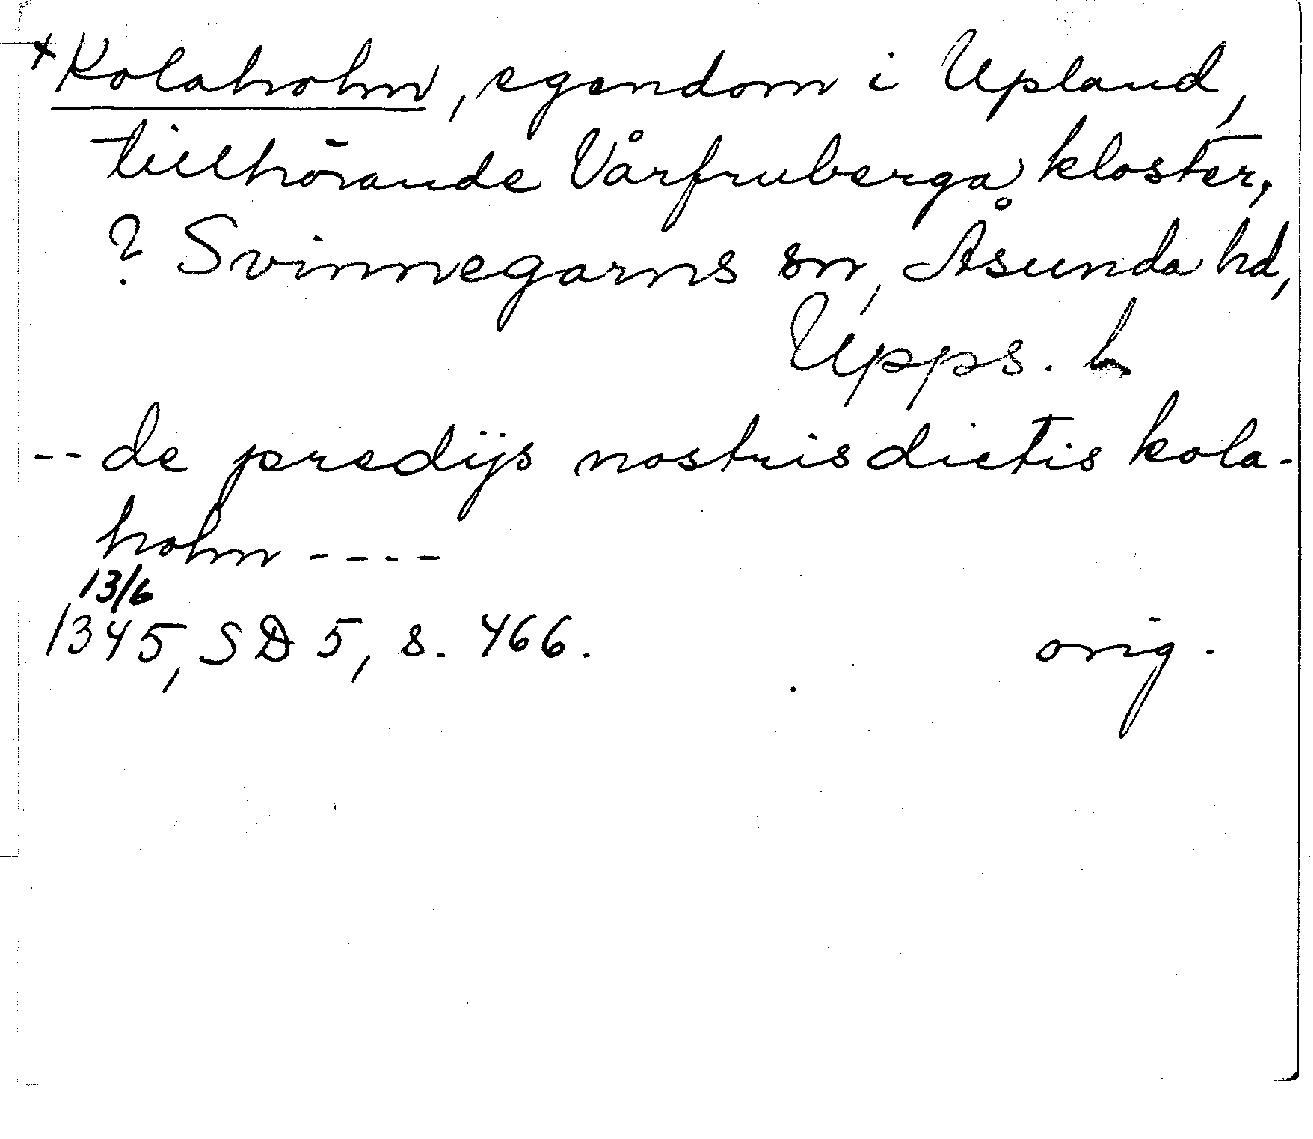 +Kolaholm, egendom i Upland,
tillhörande Vårfruberga kloster,
? Svinnegarns sn, Åsunda hd,
Upps. l.
-- de predijs nostris dictis kola-
holm ----
13/6
1345, SD 5, s. 466. orig.